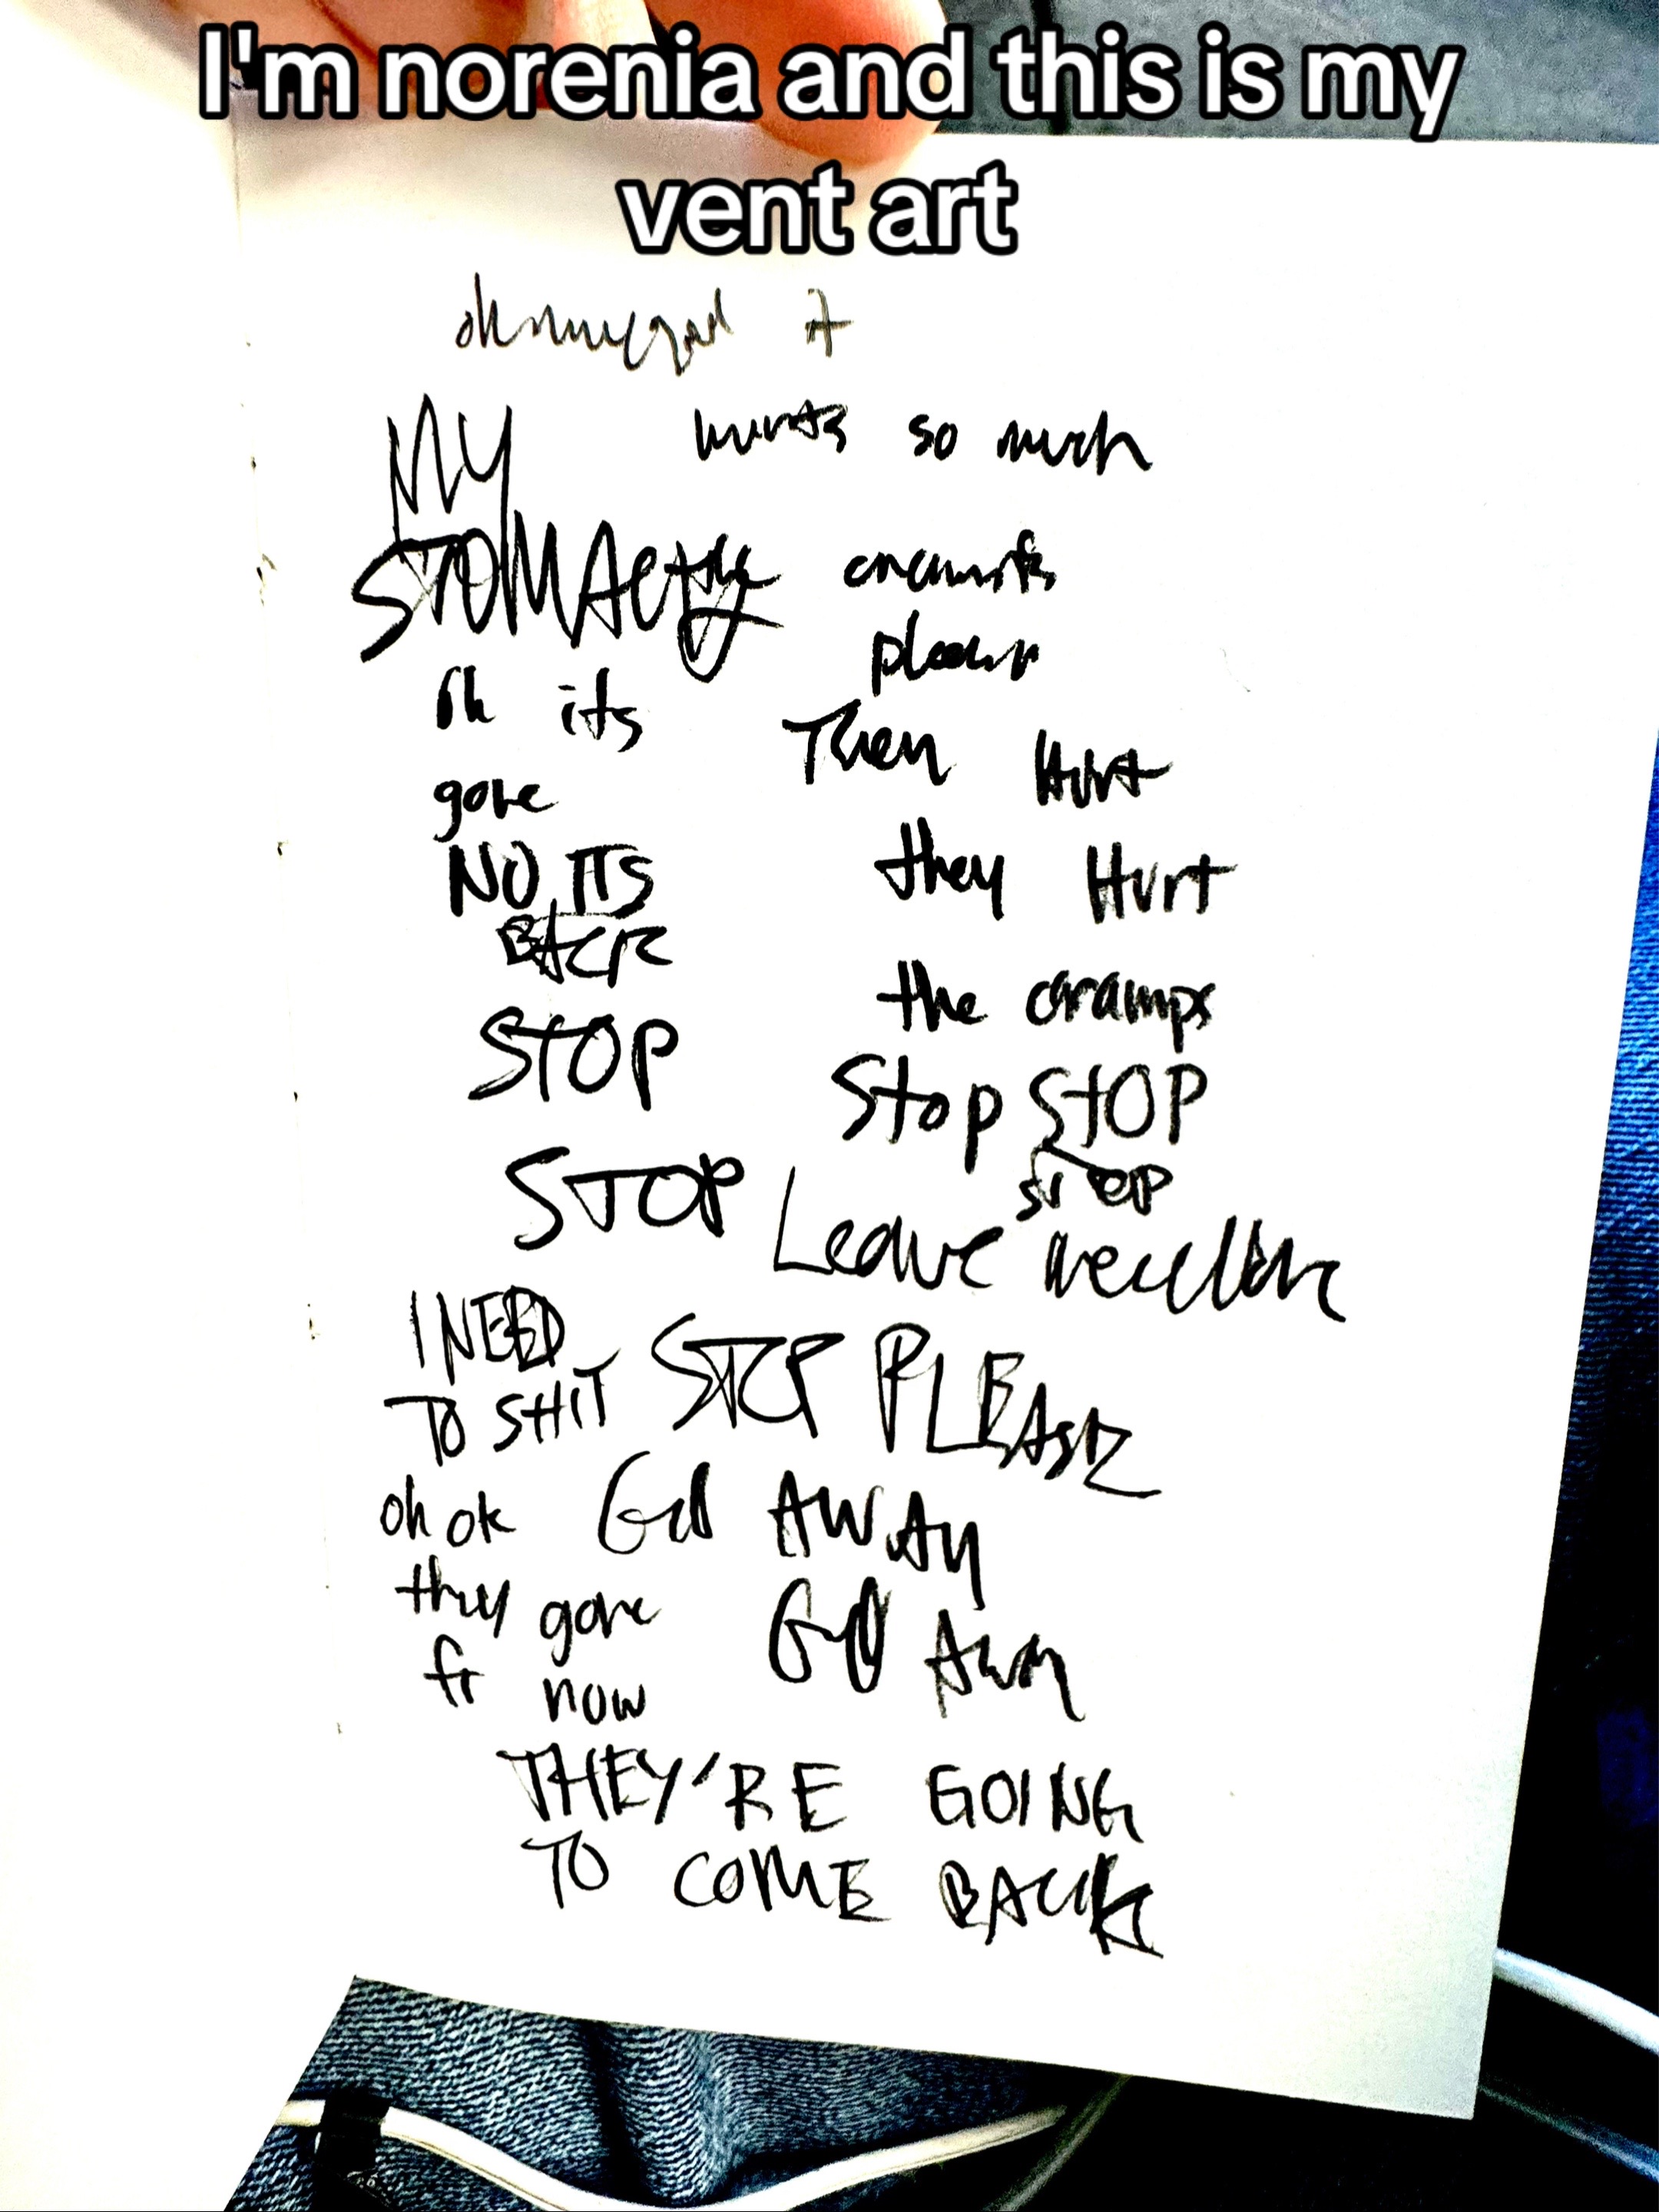 I'm norenia and this is my
vent art
ohmygod it
hurts so much
MY
STOMACH
oh its
gone
NO ITS
BACK
STOP
STOP
I NEED
TO SHIT
oh ok
they gone
fr now
Then Hurt
they Hurt
the cramps
Stop STOP
STOP
Leave
STOP PLEASE
AWAY
THEY'RE GOING
TO COME BACK